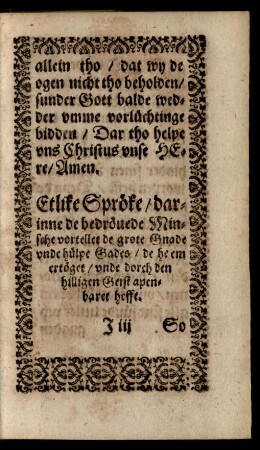 allein tho / dat wy de
ogen nicht tho beholden /
sunder Gott balde wed-
der vmme vorlüchtinge
bidden / Dar tho helpe
vns Christus vnse HE-
re / Amen.
Etlike Spröke / dar-
inne de bedröuede Min-
sche vortellet de grote Gnade
vnde hülpe Gades / de he em
ertöget / vnde dorch den
hilligen Geist apen-
baret hefft.
J iij So